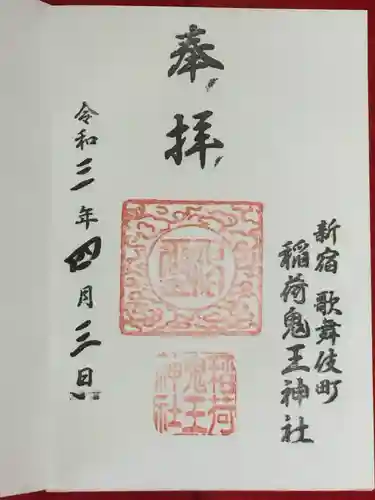 新宿 歌舞伎町
稲荷鬼王神社
奉拝
稲荷
鬼王
神社
令和三年四月三日